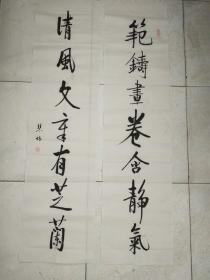 範鑄畫卷含靜氣
清風文章有芝蘭